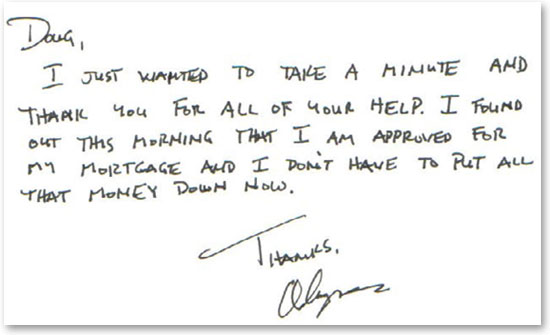 Doug,
I JUST WANTED TO TAKE A MINUTE AND
THANK YOU FOR ALL OF YOUR HELP. I FOUND
OUT THIS MORNING THAT I AM APPROVED FOR
MY MORTGAGE AND I DON'T HAVE TO PUT ALL
THAT MONEY DOWN NOW.
THANKS,